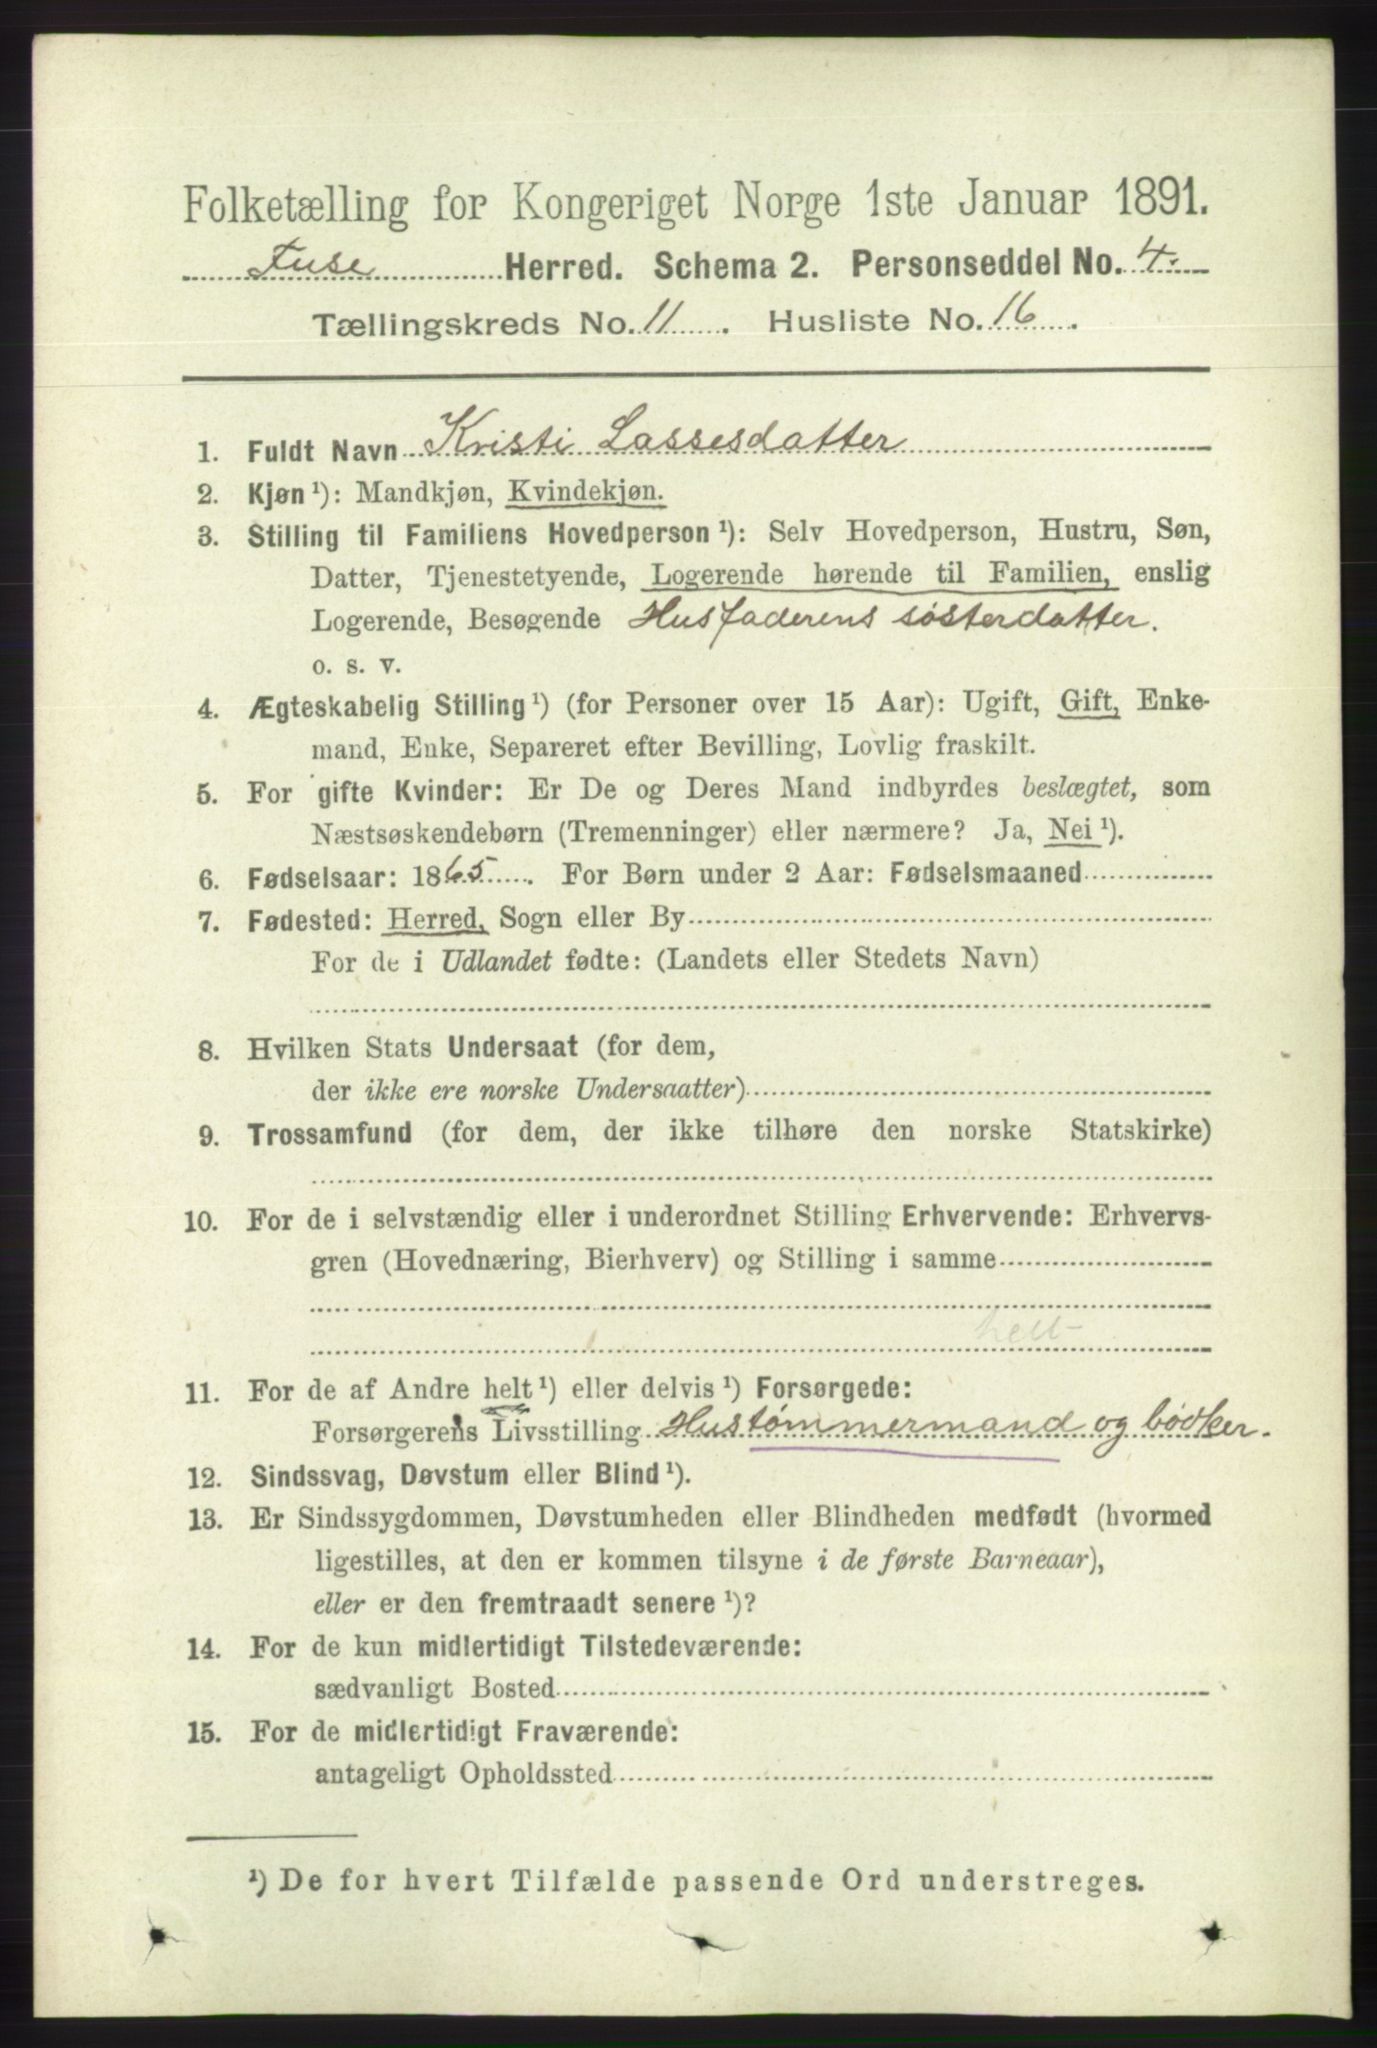 Folketælling for Kongeriget Norge 1ste Januar 1891.
Fuse Herred. Schema 2. Personseddel No. 4.
Tællingskreds No. 11. Husliste No. 16.
1. Fuldt Navn Kristi Lassesdatter
2. Kjøn ¹): Mandkjøn, Kvindekjøn.
3. Stilling til Familiens Hovedperson ¹): Selv Hovedperson, Hustru, Søn,
Datter, Tjenestetyende, Logerende hørende til Familien, enslig
Logerende, Besøgende Husfaderens søsterdatter.
o. s. v.
4. Ægteskabelig Stilling ¹) (for Personer over 15 Aar): Ugift, Gift, Enke-
mand, Enke, Separeret efter Bevilling, Lovlig fraskilt.
5. For gifte Kvinder: Er De og Deres Mand indbyrdes beslægtet, som
Næstsøskendebørn (Tremenninger) eller nærmere? Ja, Nei ¹).
6. Fødselsaar: 1865. For Børn under 2 Aar: Fødselsmaaned
7. Fødested: Herred, Sogn eller By
For de i Udlandet fødte: (Landets eller Stedets Navn)
8. Hvilken Stats Undersaat (for dem,
der ikke ere norske Undersaatter)
9. Trossamfund (for dem, der ikke tilhøre den norske Statskirke)
10. For de i selvstændig eller i underordnet Stilling Erhvervende: Erhvervs-
gren (Hovednæring, Bierhverv) og Stilling i samme
helt
11. For de af Andre helt ¹) eller delvis ¹) Forsørgede:
Forsørgerens Livsstilling Hustømmermand og bødker.
12. Sindssvag, Døvstum eller Blind ¹).
13. Er Sindssygdommen, Døvstumheden eller Blindheden medfødt (hvormed
ligestilles, at den er kommen tilsyne i de første Barneaar),
eller er den fremtraadt senere ¹)?
14. For de kun midlertidigt Tilstedeværende:
sædvanligt Bosted
15. For de midlertidigt Fraværende:
antageligt Opholdssted
¹) De for hvert Tilfælde passende Ord understreges.